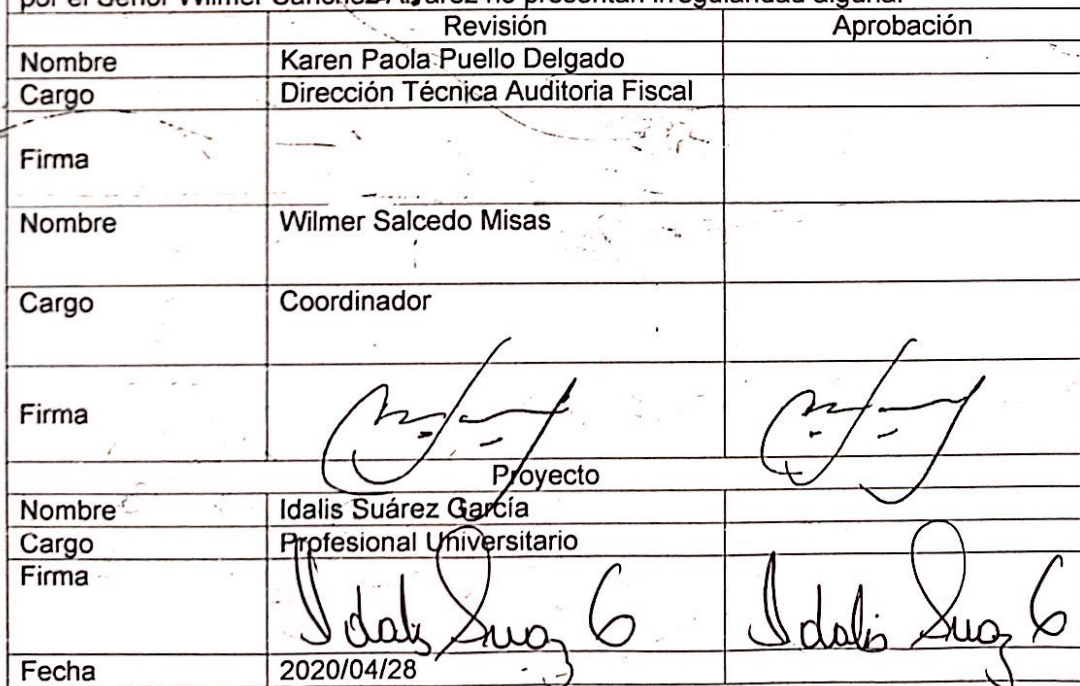 por el Señor Wilmer Sánchez Alvarez no presentan irregularidad alguna.
Revisión Aprobación
Nombre Karen Paola Puello Delgado
Cargo Dirección Técnica Auditoria Fiscal
Firma
Nombre Wilmer Salcedo Misas
Cargo Coordinador
Firma
Proyecto
Nombre Idalis Suárez García
Cargo Profesional Universitario
Firma Idalis Suaz G Idalis Suaz G
Fecha 2020/04/28